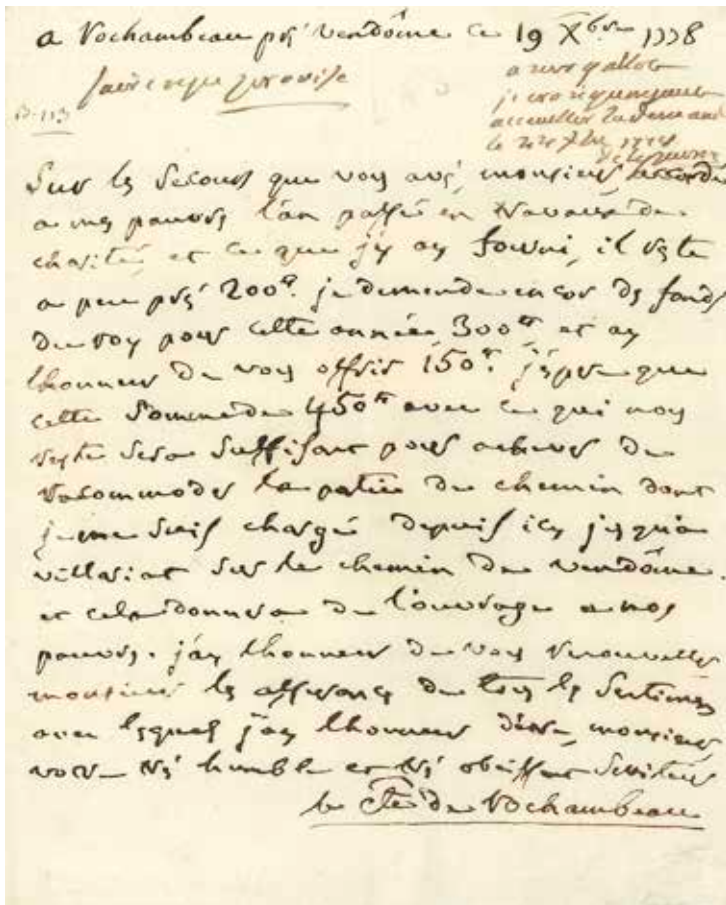 a Rochambeau prés vendôme ce 19 Xbre 1778
B-113
Sur les secours que vous avés, monsieur, accordé
a mes pauvres l'an passé en travaux de
charité, et ce que j'y ay fourni, il reste
a peu prés 200tt. je demende encor des fonds
du roy pour cette année, 300tt et ay
lhonneur de vous offrir 150tt. j'éspere que
cette somme de 450tt avec ce qui nous
reste sera suffisant pour achever de
racommoder la partie du chemin dont
je me suis chargé depuis icy jusqu'a
villariat sur le chemin de vendôme.
et cela donnera de l'ouvrage a nos
pauvres. j'ay lhonneur de vous renouveller
monsieur les assurances de tous les sentimens
avec lesquels j'ay lhonneur d'être, monsieur,
votre trés humble et trés obéissant serviteur
le Cte de Rochambeau